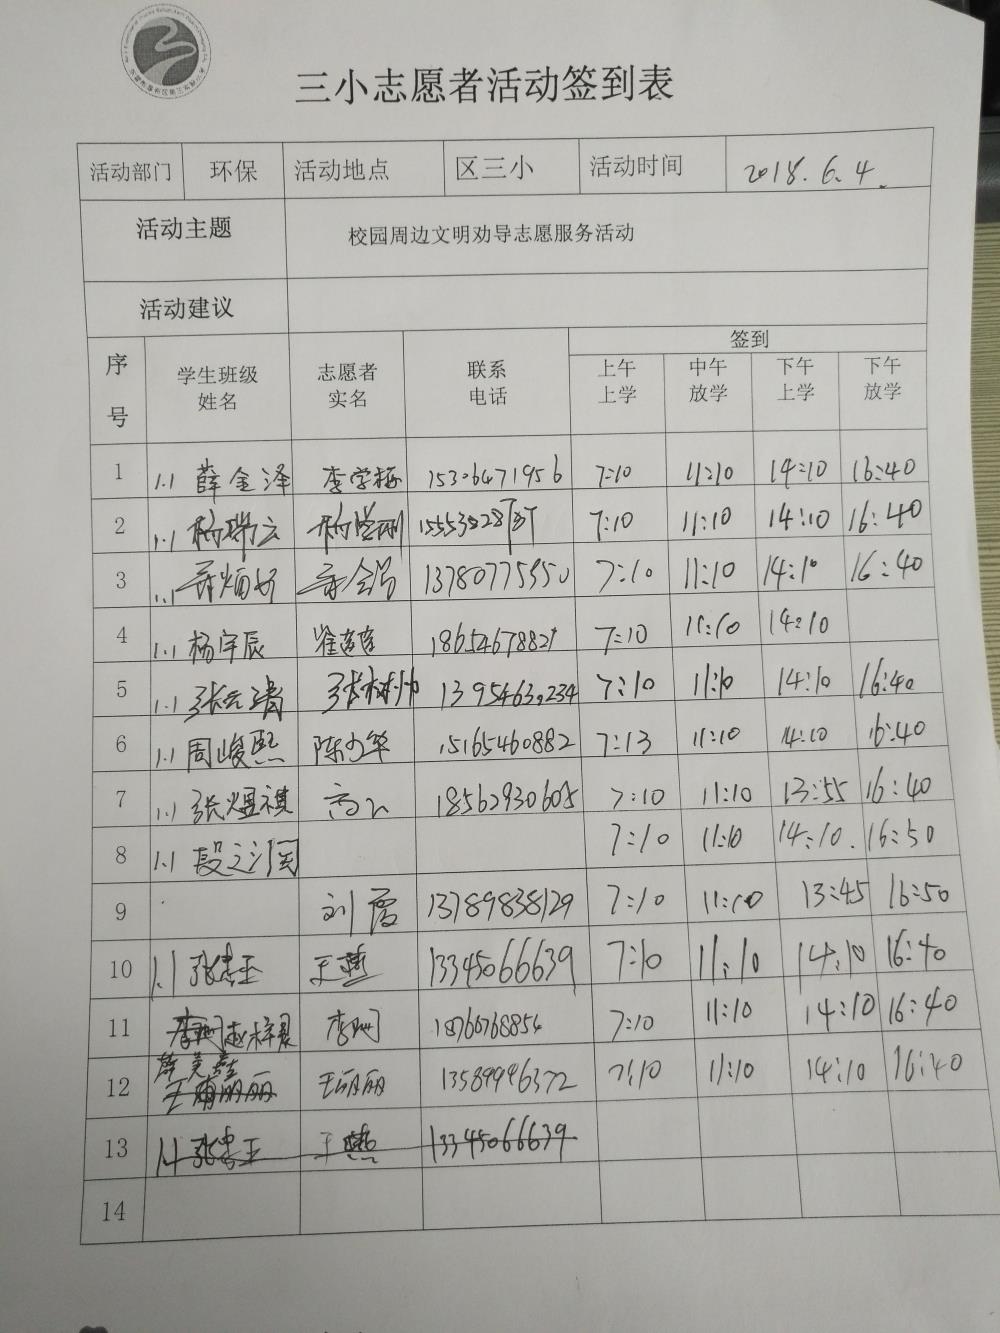 三小志愿者活动签到表
活动部门 环保 活动地点 区三小 活动时间 2018.6.4.
活动主题 校园周边文明劝导志愿服务活动
活动建议
序号 学生班级姓名 志愿者实名 联系电话 签到
上午上学 中午放学 下午上学 下午放学
1 1.1 薛金泽 李学梅 15306471956 7:10 11:10 14:10 16:40
2 1.1 7:10 11:10 14:10 16:40
3 1.1 13780775950 7:10 11:10 14:10 16:40
4 1.1 杨宇辰 崔莲莲 18654678821 7:10 11:10 14:10
5 1.1 张 张树帅 13954630234 7:10 11:10 14:10 16:40
6 1.1 周峻熙 陈少华 15165460882 7:13 11:10 14:10 16:40
7 1.1 张煜祺 18562930605 7:10 11:10 13:55 16:40
8 1.1 段 7:10 11:10 14:10. 16:50
9 刘霞 13789838129 7:10 11:10 13:45 16:50
10 1.1 张 王玉 王燕 13345066639 7:10 11:10 14:10 16:40
11 赵梓晨 李珊 18766768854 7:10 11:10 14:10 16:40
12 薛 王丽丽 13589946372 7:10 11:10 14:10 16:40
13 1.1 王燕 13345066639
14